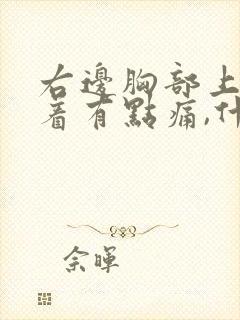 右邊胸部上
着有點痛,什
佘暉